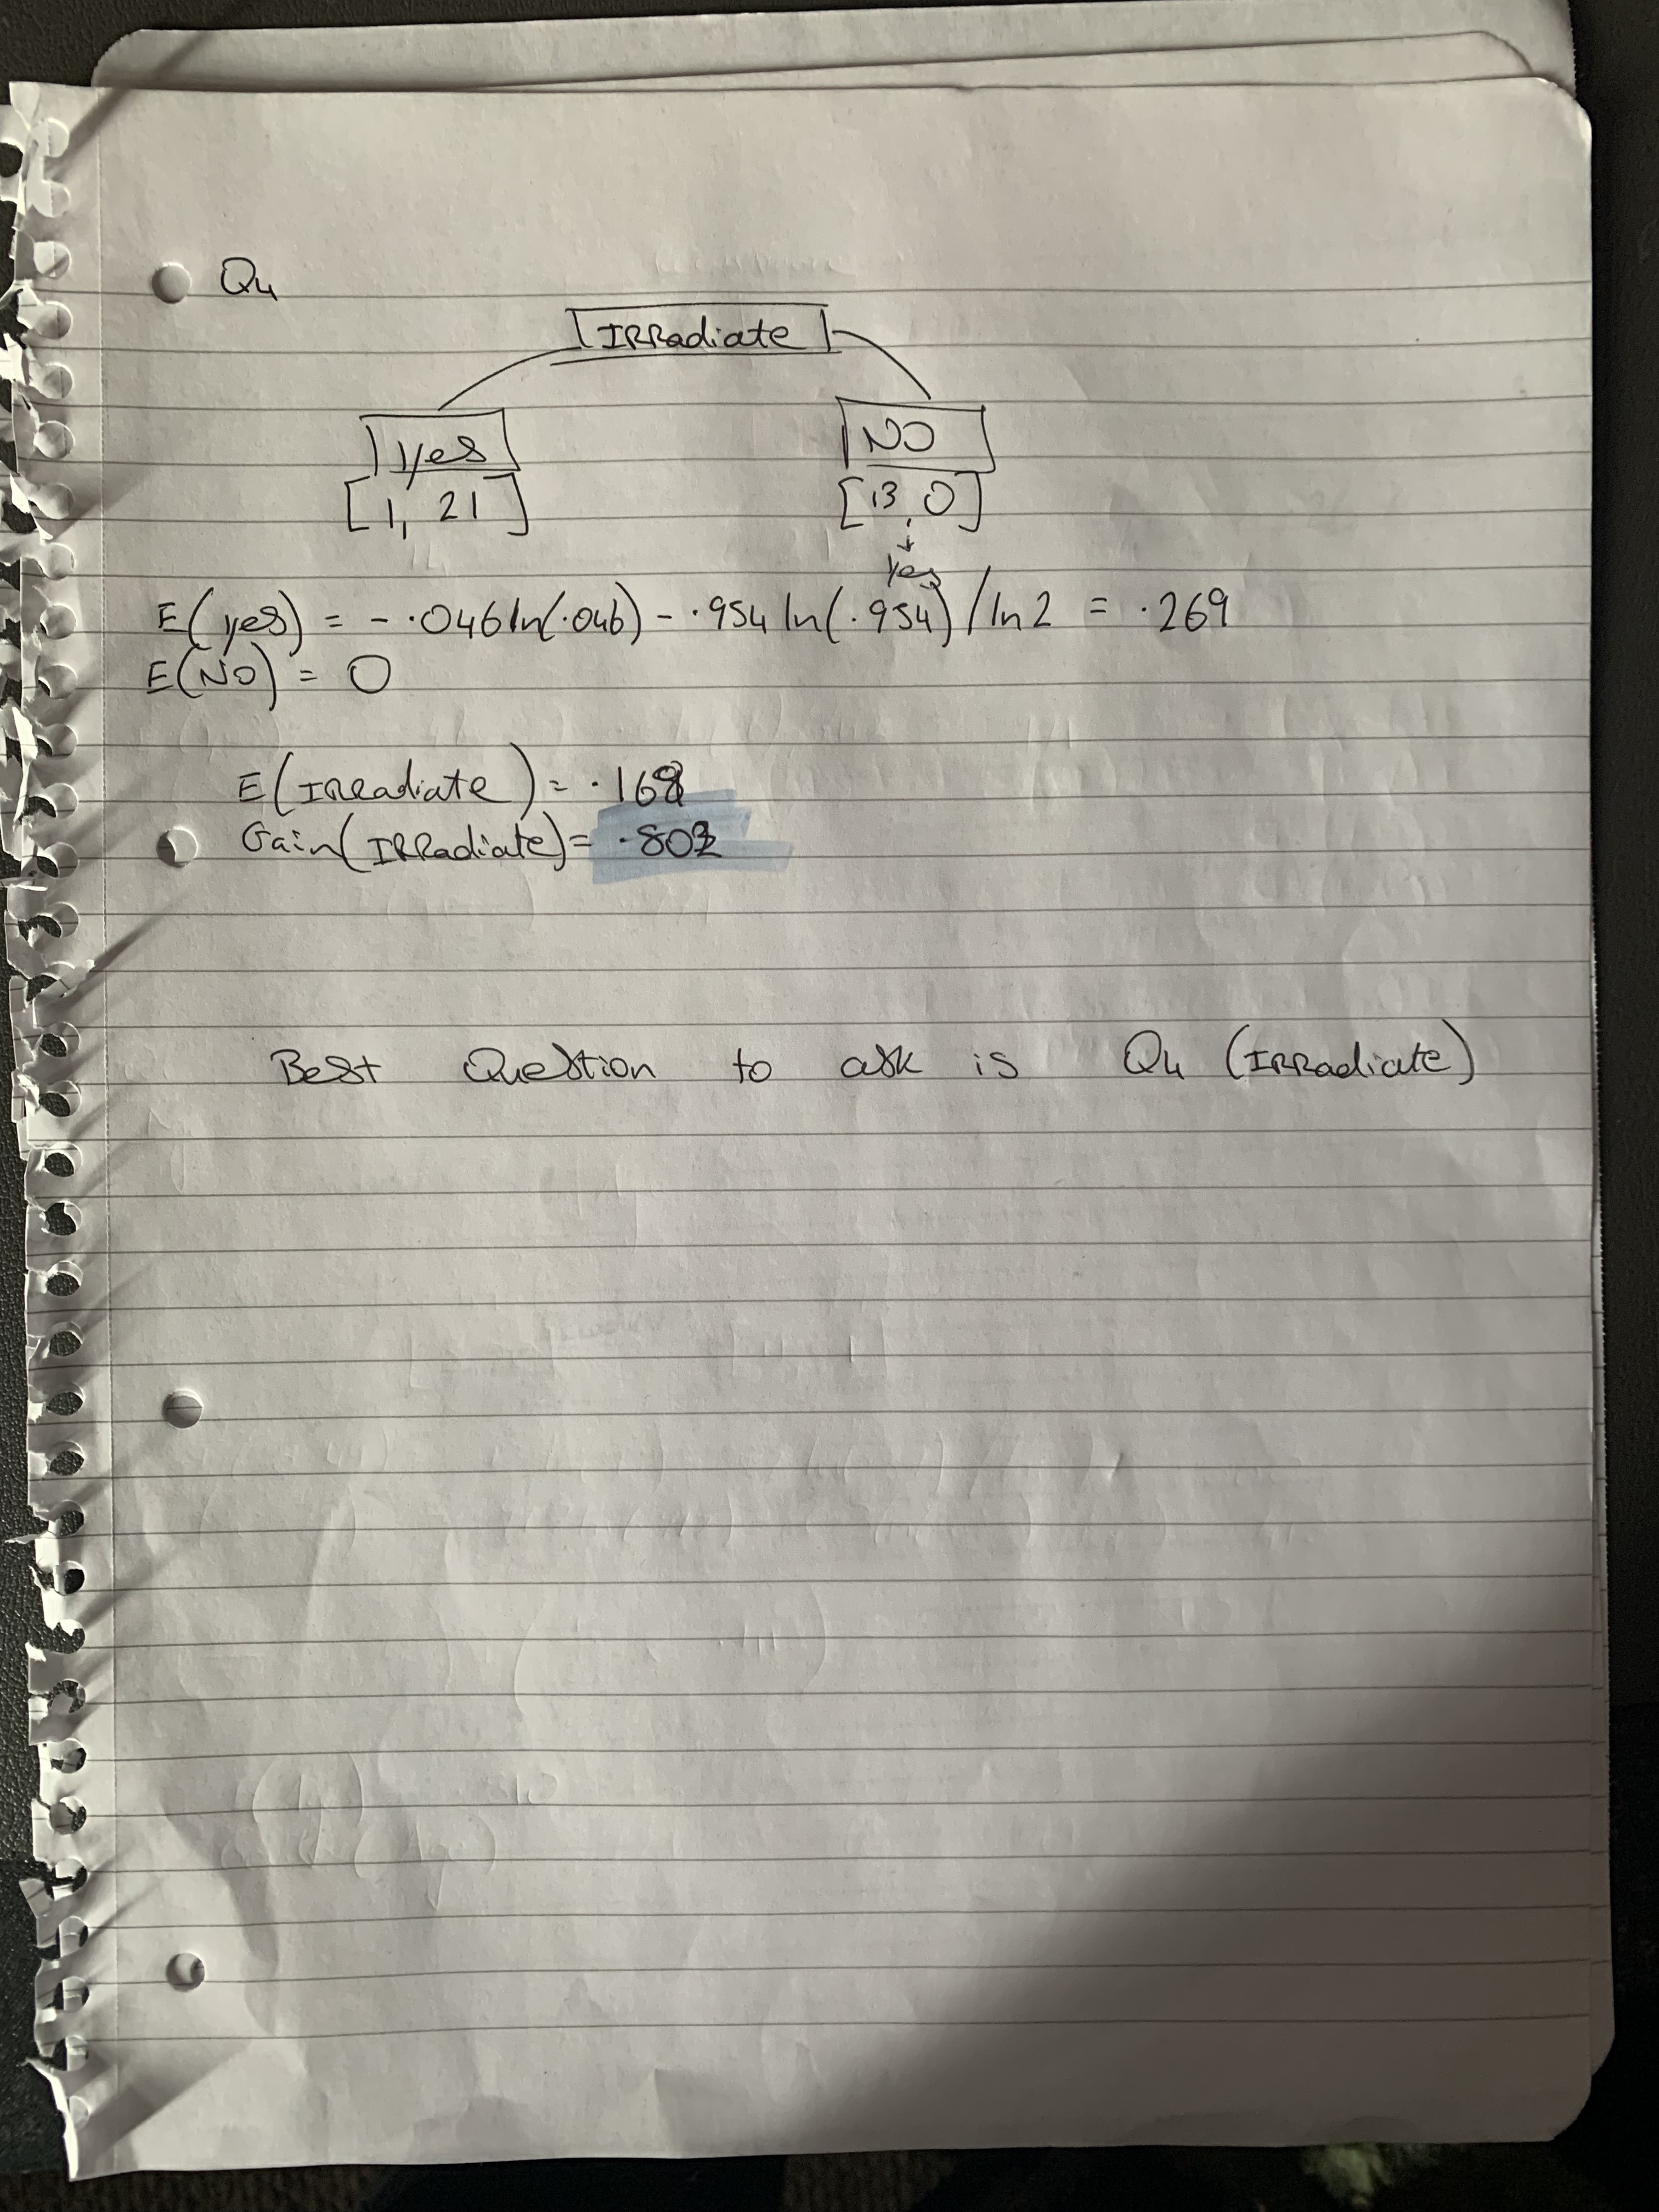 Q4
IRRadiate
yes NO
[1, 21] [13, 0]
yes
E(yes) = - .046 ln(.046) - .954 ln(.954) / ln 2 = .269
E(NO) = 0
E(IRRadiate) =
Gain(IRRadiate) =
Best Question to ask is Q4 (IRRadiate)